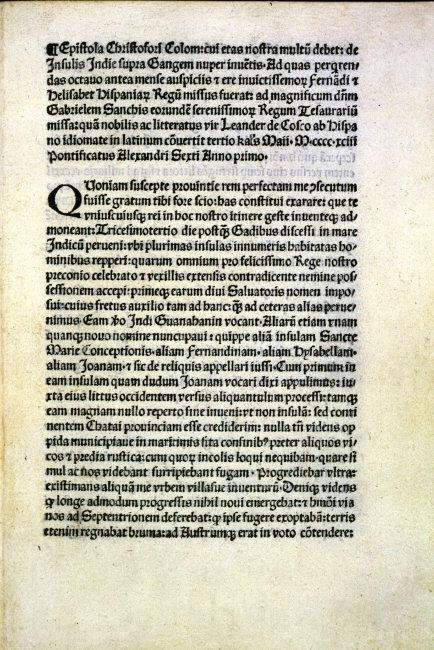 ¶Epistola Christofori Colom: cui etas nostra multũ debet: de
Insulis Indie supra Gangem nuper inuẽtis· Ad quas perqꝛen-
das octauo antea mense auspiciis ⁊ ere inuictissemoꝝ Fernãdi ⁊
Helisabet Hispaniaꝝ Regũ missus fuerat: ad magnificum dñm
Gabrielem Sanchis eorundẽ serenissimoꝝ Regum Tesaurariũ
missa: quã nobilis ac litteratus vir Leander de Cosco ab Hispa
no idiomate in latinum cõuertit tertio kal̃s Maii· M·cccc·xciii
Pontificatus Alexandri Sexti Anno primo·
QUoniam suscepte prouintie rem perfectam me ↄsecutum
fuisse gratum tibi fore scio: has constitui exarare: que te
vniuscuiusqꝫ rei in hoc nostro itinere geste inuenteqꝫ ad-
moneant: Tricesimotertio die postqꝫ Gadibus discessi in mare
Indicũ perueni: vbi plurimas insulas innumeris habitatas ho-
minibus repperi: quarum omnium pro felicissimo Rege nostro
preconio celebrato ⁊ vexillis extensis contradicente nemine pos-
sessionem accepi: primeqꝫ earum diui Saluatoris nomen impo-
sui: cuius fretus auxilio tam ad hanc qꝫ ad ceteras alias perue-
nimus· Eam ꝟo Indi Guanahanin vocant· Aliarũ etiam vnam
quancqꝫ nouo nomine nuncupaui: quippe aliã insulam Sancte
Marie Conceptionis· aliam Fernandinam· aliam Hysabellam·
aliam Joanam· ⁊ sic de reliquis appellari iussi· Cum primum in
eam insulam quam dudum Joanam vocari dixi appulimus: iu-
xta eius littus occidentem versus aliquantulum processi: tamqꝫ
eam magnam nullo reperto fine inueni: vt non insulã: sed conti
nentem Chatai prouinciam esse crediderim: nulla tñ videns op
pida municipiaue in maritimis sita confinibꝰ preter aliquos vi-
cos ⁊ predia rustica: cum quoꝝ incolis loqui nequibam· quare si
mul ac nos videbant surripiebant fugam· Progrediebar vltra:
existimans aliquã me vrbem villasue inuenturũ· Deniqꝫ videns
ꝙ longe admodum progressis nihil noui emergebat: ⁊ hmõi via
nos ad Septentrionem deferebat: ꝙ ipse fugere exoptabã: terris
etenim regnabat bruma: ad Austrumqꝫ erat in voto cõtendere: